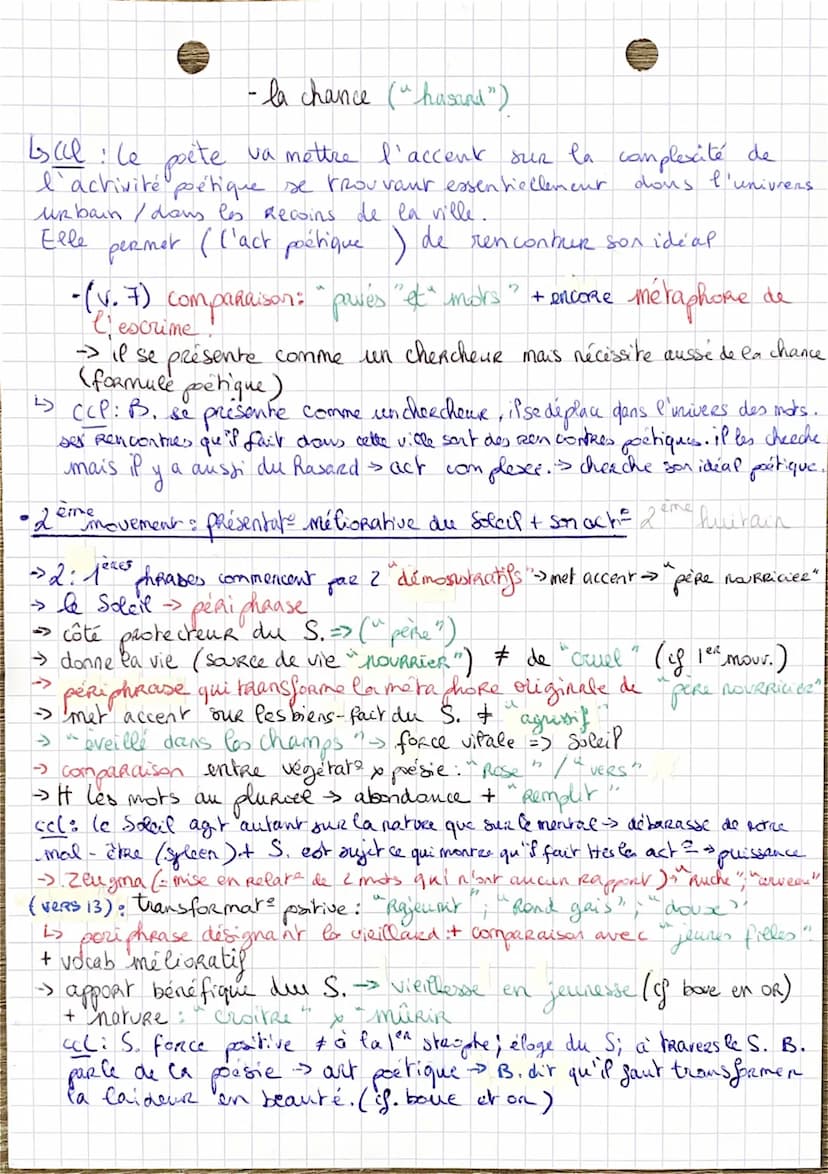 - la chance ("hasard")
↳ ccl : le poète va mettre l'accent sur la complexité de
l'activité poétique se trouvant essentiellement dans l'univers
urbain / dans les recoins de la ville.
Elle permet (l'act poétique ) de rencontrer son idéal
• (v. 7) comparaison: "pavés" et "mots" + encore métaphore de
l'escrime !
-> il se présente comme un chercheur mais nécessite aussi de la chance
(formule poétique)
↳ ccl: B. se présente comme un chercheur, il se déplace dans l'univers des mots.
ses rencontres qu'il fait dans cette ville sont des rencontres poétiques. il les cherche
mais il y a aussi du hasard -> act complexe. -> cherche son idéal poétique.
• 2ème mouvement : présentat° méliorative du Soleil + son act° 2ème huitain
-> 2: 1ères phrases commencent par 2 "démonstratifs" -> met accent -> "père nourricier"
-> le Soleil -> périphrase
-> côté protecteur du S. => ("père")
-> donne la vie (source de vie "NOURRIER") ≠ de "cruel" (cf 1er mouv.)
-> périphrase qui transforme la métaphore originale de "père nourricier"
-> met accent sur les biens-fait du S. ≠ "agressif"
-> "éveille dans les champs" -> force vitale => Soleil
-> comparaison entre végétat° x poésie : "Rose" / "vers"
-> Tt les mots au pluriel -> abondance + "Remplit"
ccl: le Soleil agit autant sur la nature que sur le mental -> débarasse de notre
mal-être (spleen). + S. est sujet ce qui montre qu'il fait ttes les act° -> puissance
-> Zeugma (= mise en relat° de 2 mots qui n'ont aucun rapport) : "Ruche" ; "cerveau"
(vers 13) : transformat° positive : "Rajeunit" ; "Rend gais" ; "doux"
↳ periphrase désignant les vieillard + comparaison avec "jeunes filles"
+ vocab mélioratif
-> apport bénéfique du S. -> vieillesse en jeunesse (cf boue en or)
+ nature : "croître" x "mûrir
ccl: S. force positive ≠ à la 1er strophe ; éloge du S; à travers le S. B.
parle de la poésie -> art poétique -> B. dit qu'il faut transformer
la laideur en beauté. (cf. boue et or)